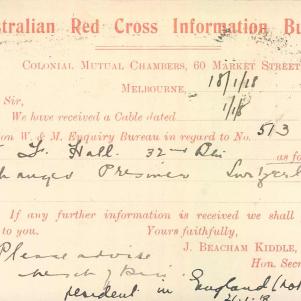 stralian Red Cross Information Bu
COLONIAL MUTUAL CHAMBERS, 60 MARKET STREET
MELBOURNE, 18/1/18
Sir,
We have received a Cable dated 1/18
on W. & M. Enquiry Bureau in regard to No. 513
Hall. 32nd as fo
Prisoner
If any further information is received we shall
to you. Yours faithfully,
J. BEACHAM KIDDLE,
Hon. Secr
Please advise
resident in England